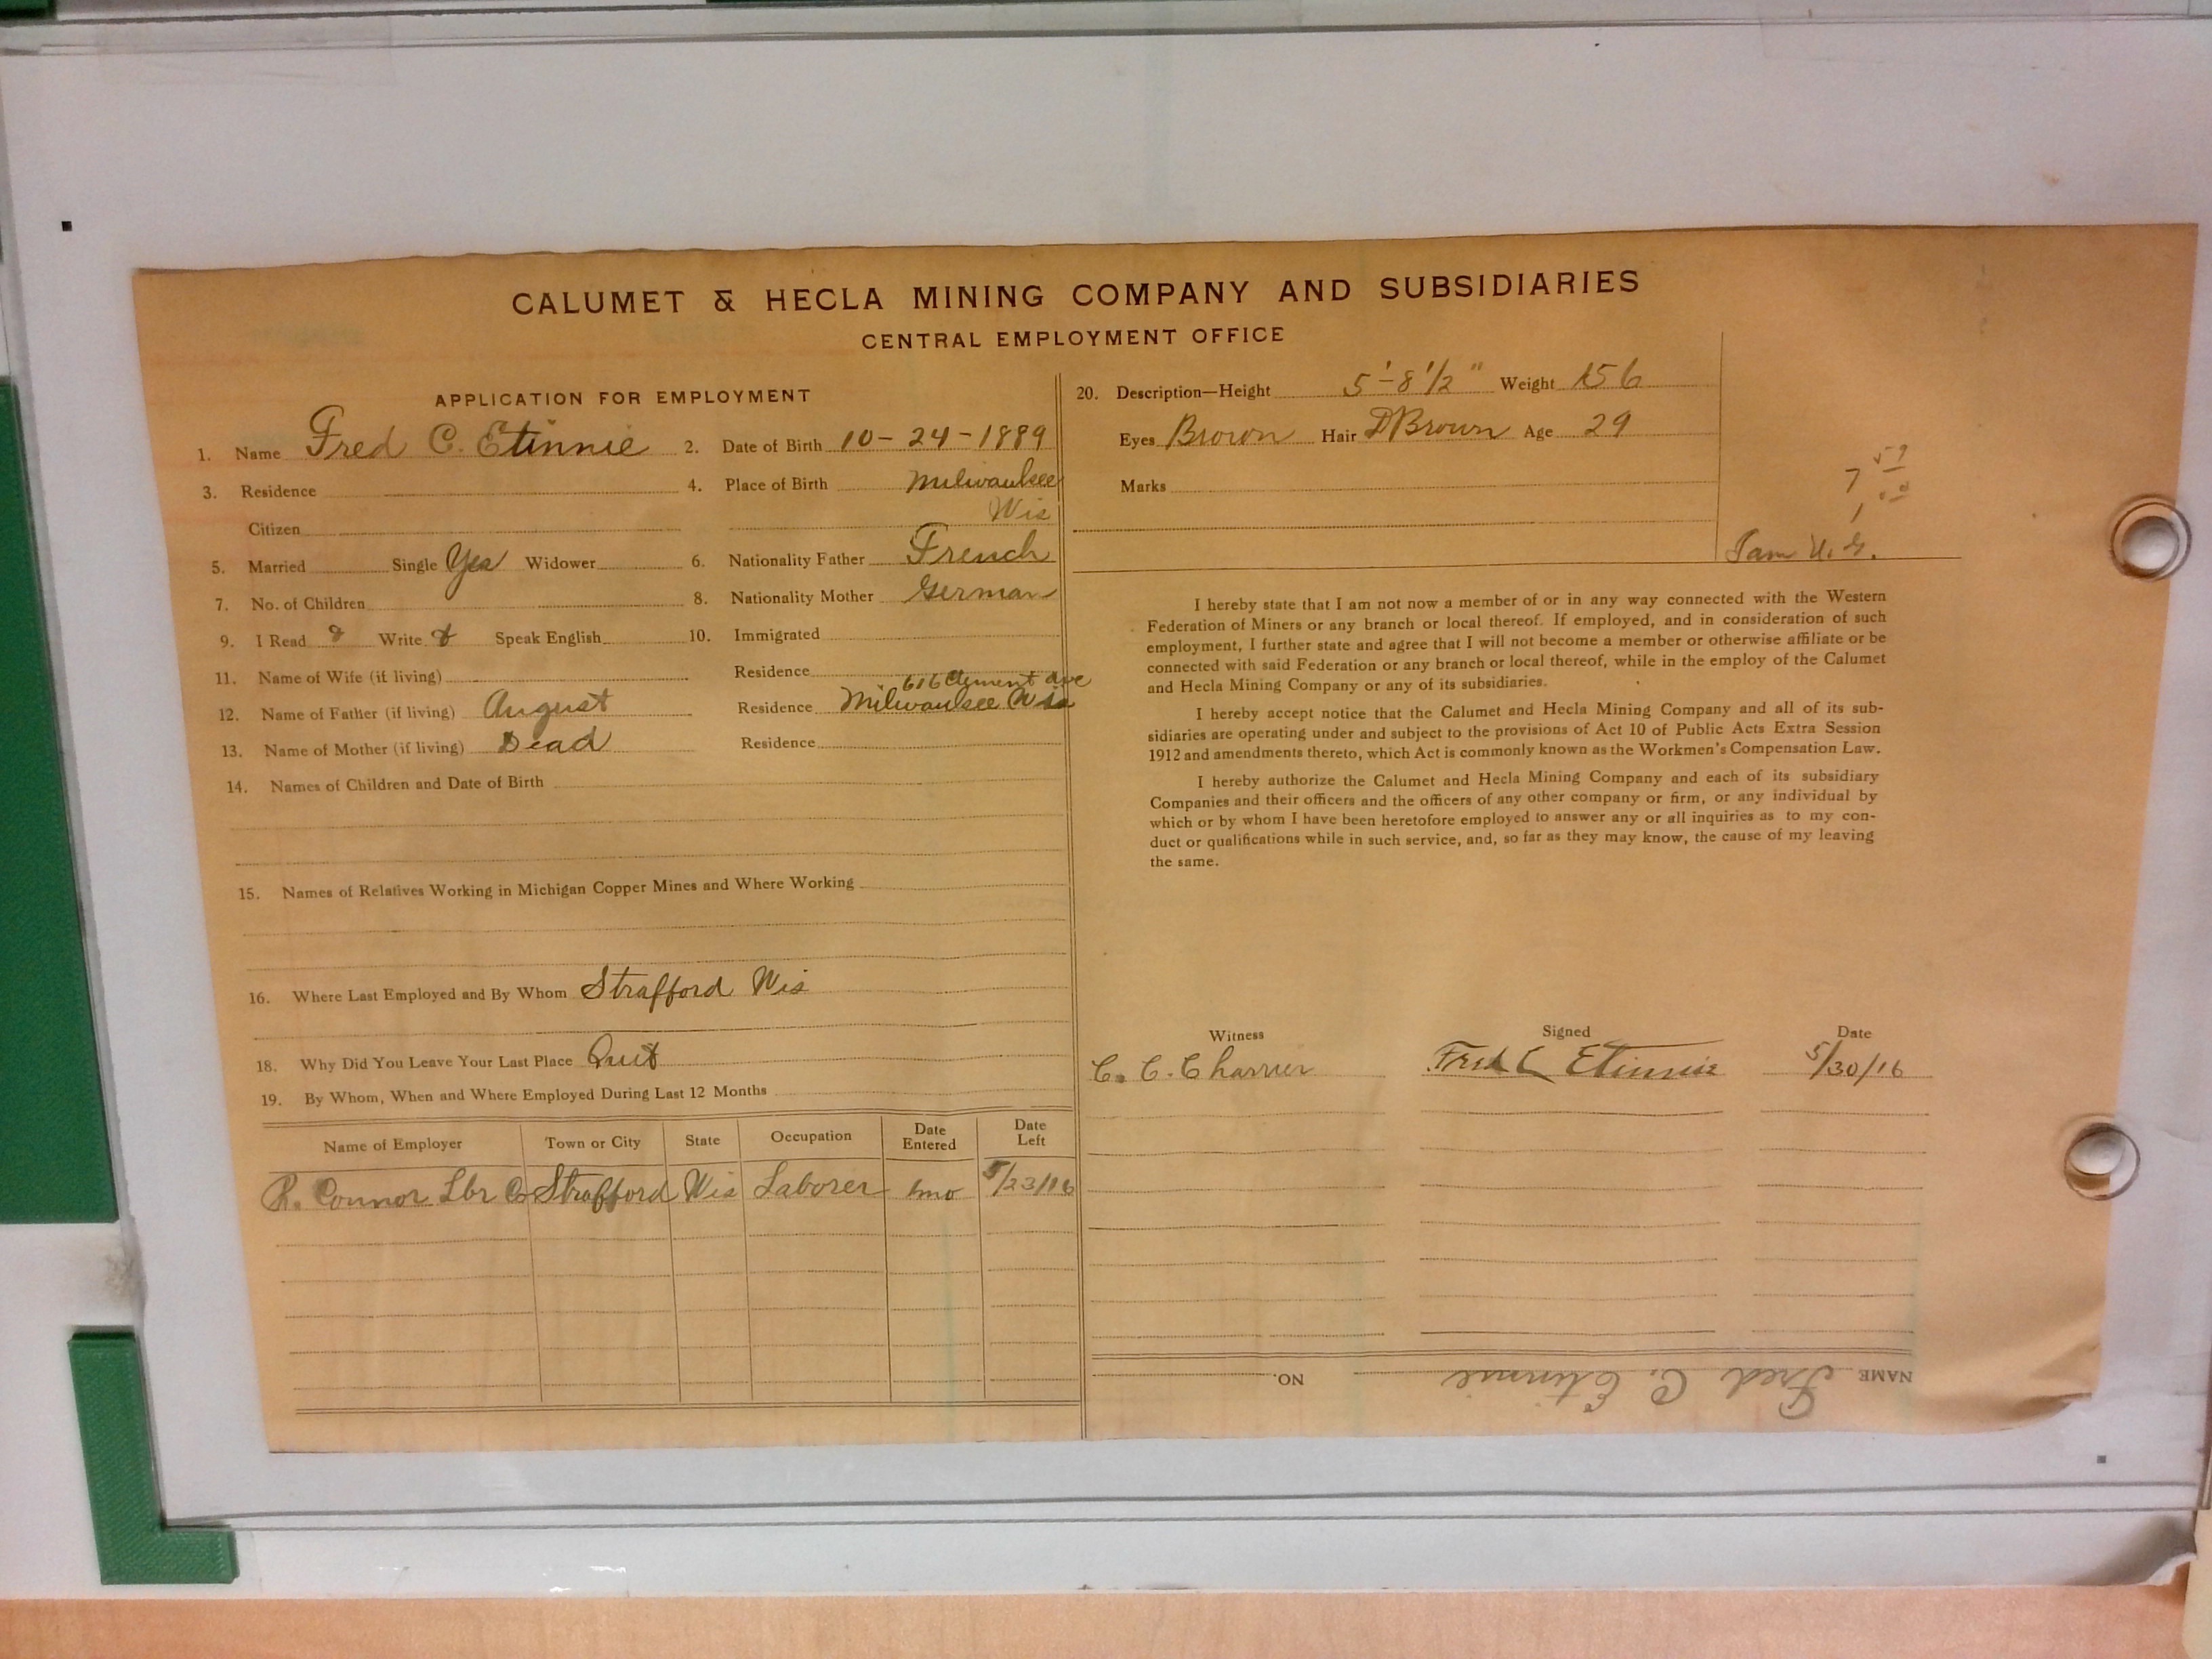 CALUMET & HECLA MINING COMPANY AND SUBSIDIARIES
CENTRAL EMPLOYMENT OFFICE
APPLICATION FOR EMPLOYMENT
1. Name Fred C. Etinnie 2. Date of Birth 10-24-1889
3. Residence 4. Place of Birth Milwaukee
Citizen Wis
5. Married Single Yes Widower 6. Nationality Father French
7. No. of Children 8. Nationality Mother German
9. I Read Write Speak English 10. Immigrated
11. Name of Wife (if living) Residence
616 Clement Ave
12. Name of Father (if living) August Residence Milwaukee Wis
13. Name of Mother (if living) Dead Residence
14. Names of Children and Date of Birth
15. Names of Relatives Working in Michigan Copper Mines and Where Working
16. Where Last Employed and By Whom Strafford Wis
18. Why Did You Leave Your Last Place Quit
19. By Whom, When and Where Employed During Last 12 Months
Name of Employer Town or City State Occupation Date Entered Date Left
R. Connor Lbr Co Strafford Wis Laborer 1mo 5/23/16
20. Description—Height 5'-8 1/2" Weight 156
Eyes Brown Hair D Brown Age 29
Marks
7
1
Sam
I hereby state that I am not now a member of or in any way connected with the Western
Federation of Miners or any branch or local thereof. If employed, and in consideration of such
employment, I further state and agree that I will not become a member or otherwise affiliate or be
connected with said Federation or any branch or local thereof, while in the employ of the Calumet
and Hecla Mining Company or any of its subsidiaries.
I hereby accept notice that the Calumet and Hecla Mining Company and all of its sub-
sidiaries are operating under and subject to the provisions of Act 10 of Public Acts Extra Session
1912 and amendments thereto, which Act is commonly known as the Workmen's Compensation Law.
I hereby authorize the Calumet and Hecla Mining Company and each of its subsidiary
Companies and their officers and the officers of any other company or firm, or any individual by
which or by whom I have been heretofore employed to answer any or all inquiries as to my con-
duct or qualifications while in such service, and, so far as they may know, the cause of my leaving
the same.
Witness Signed Date
C. C. Charrier Fred C Etinnie 5/30/16
NAME Fred C. Etinnie NO.